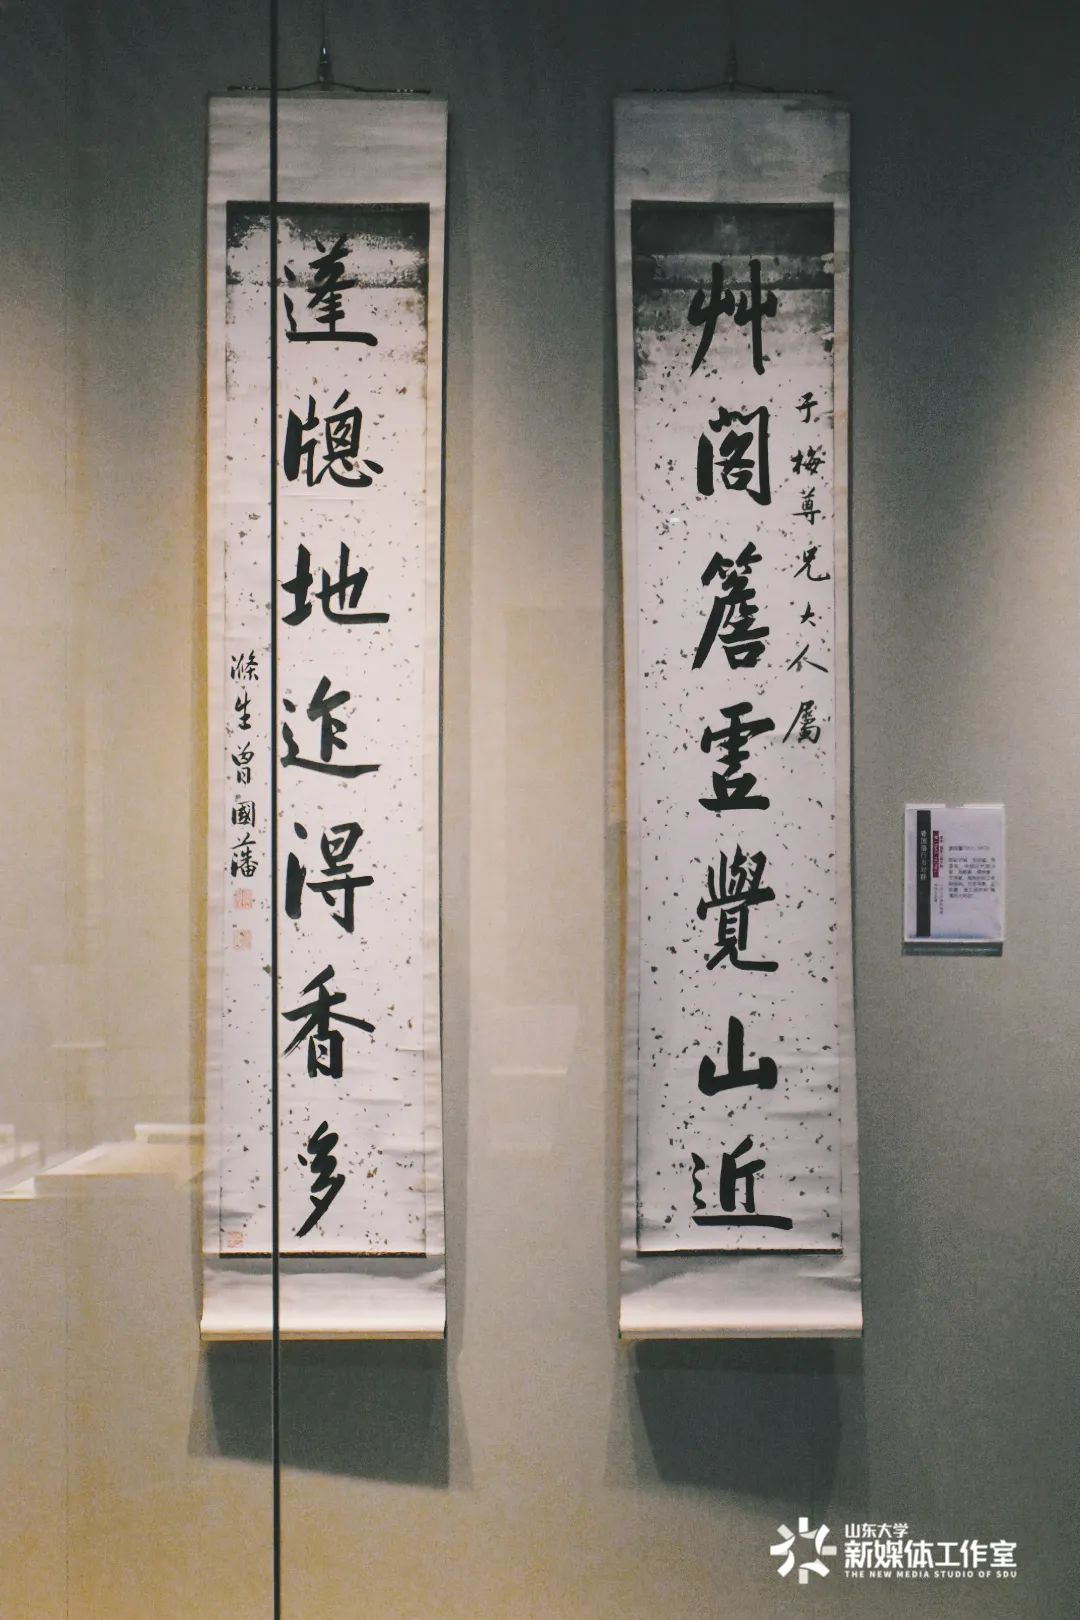 艸閣簷虗覺山近
于梅尊兄大人屬
蓬牕地迮淂香多
滌生曾國藩
曾国藩行书对联
山东大学
新媒体工作室
THE NEW MEDIA STUDIO OF SDU